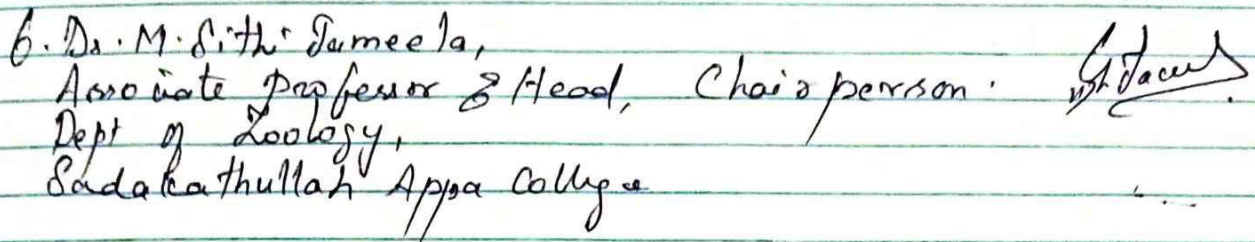 6. Dr. M. Sithi Jameela,
Associate Professor & Head, Chairperson.
Dept of Zoology,
Sadakathullah Appa College